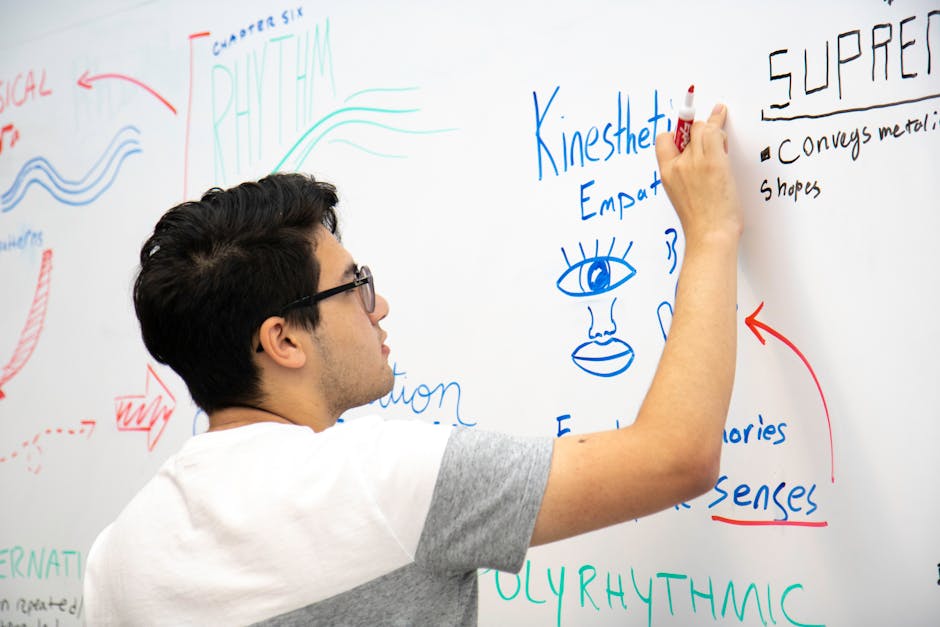 CHAPTER SIX
RHYTHM
SICAL
Kinestheti
Empat
SUPREM
Conveys metali
Shopes
tion
E
ories
senses
ERNATI
n repeated/
POLYRHYTHMIC